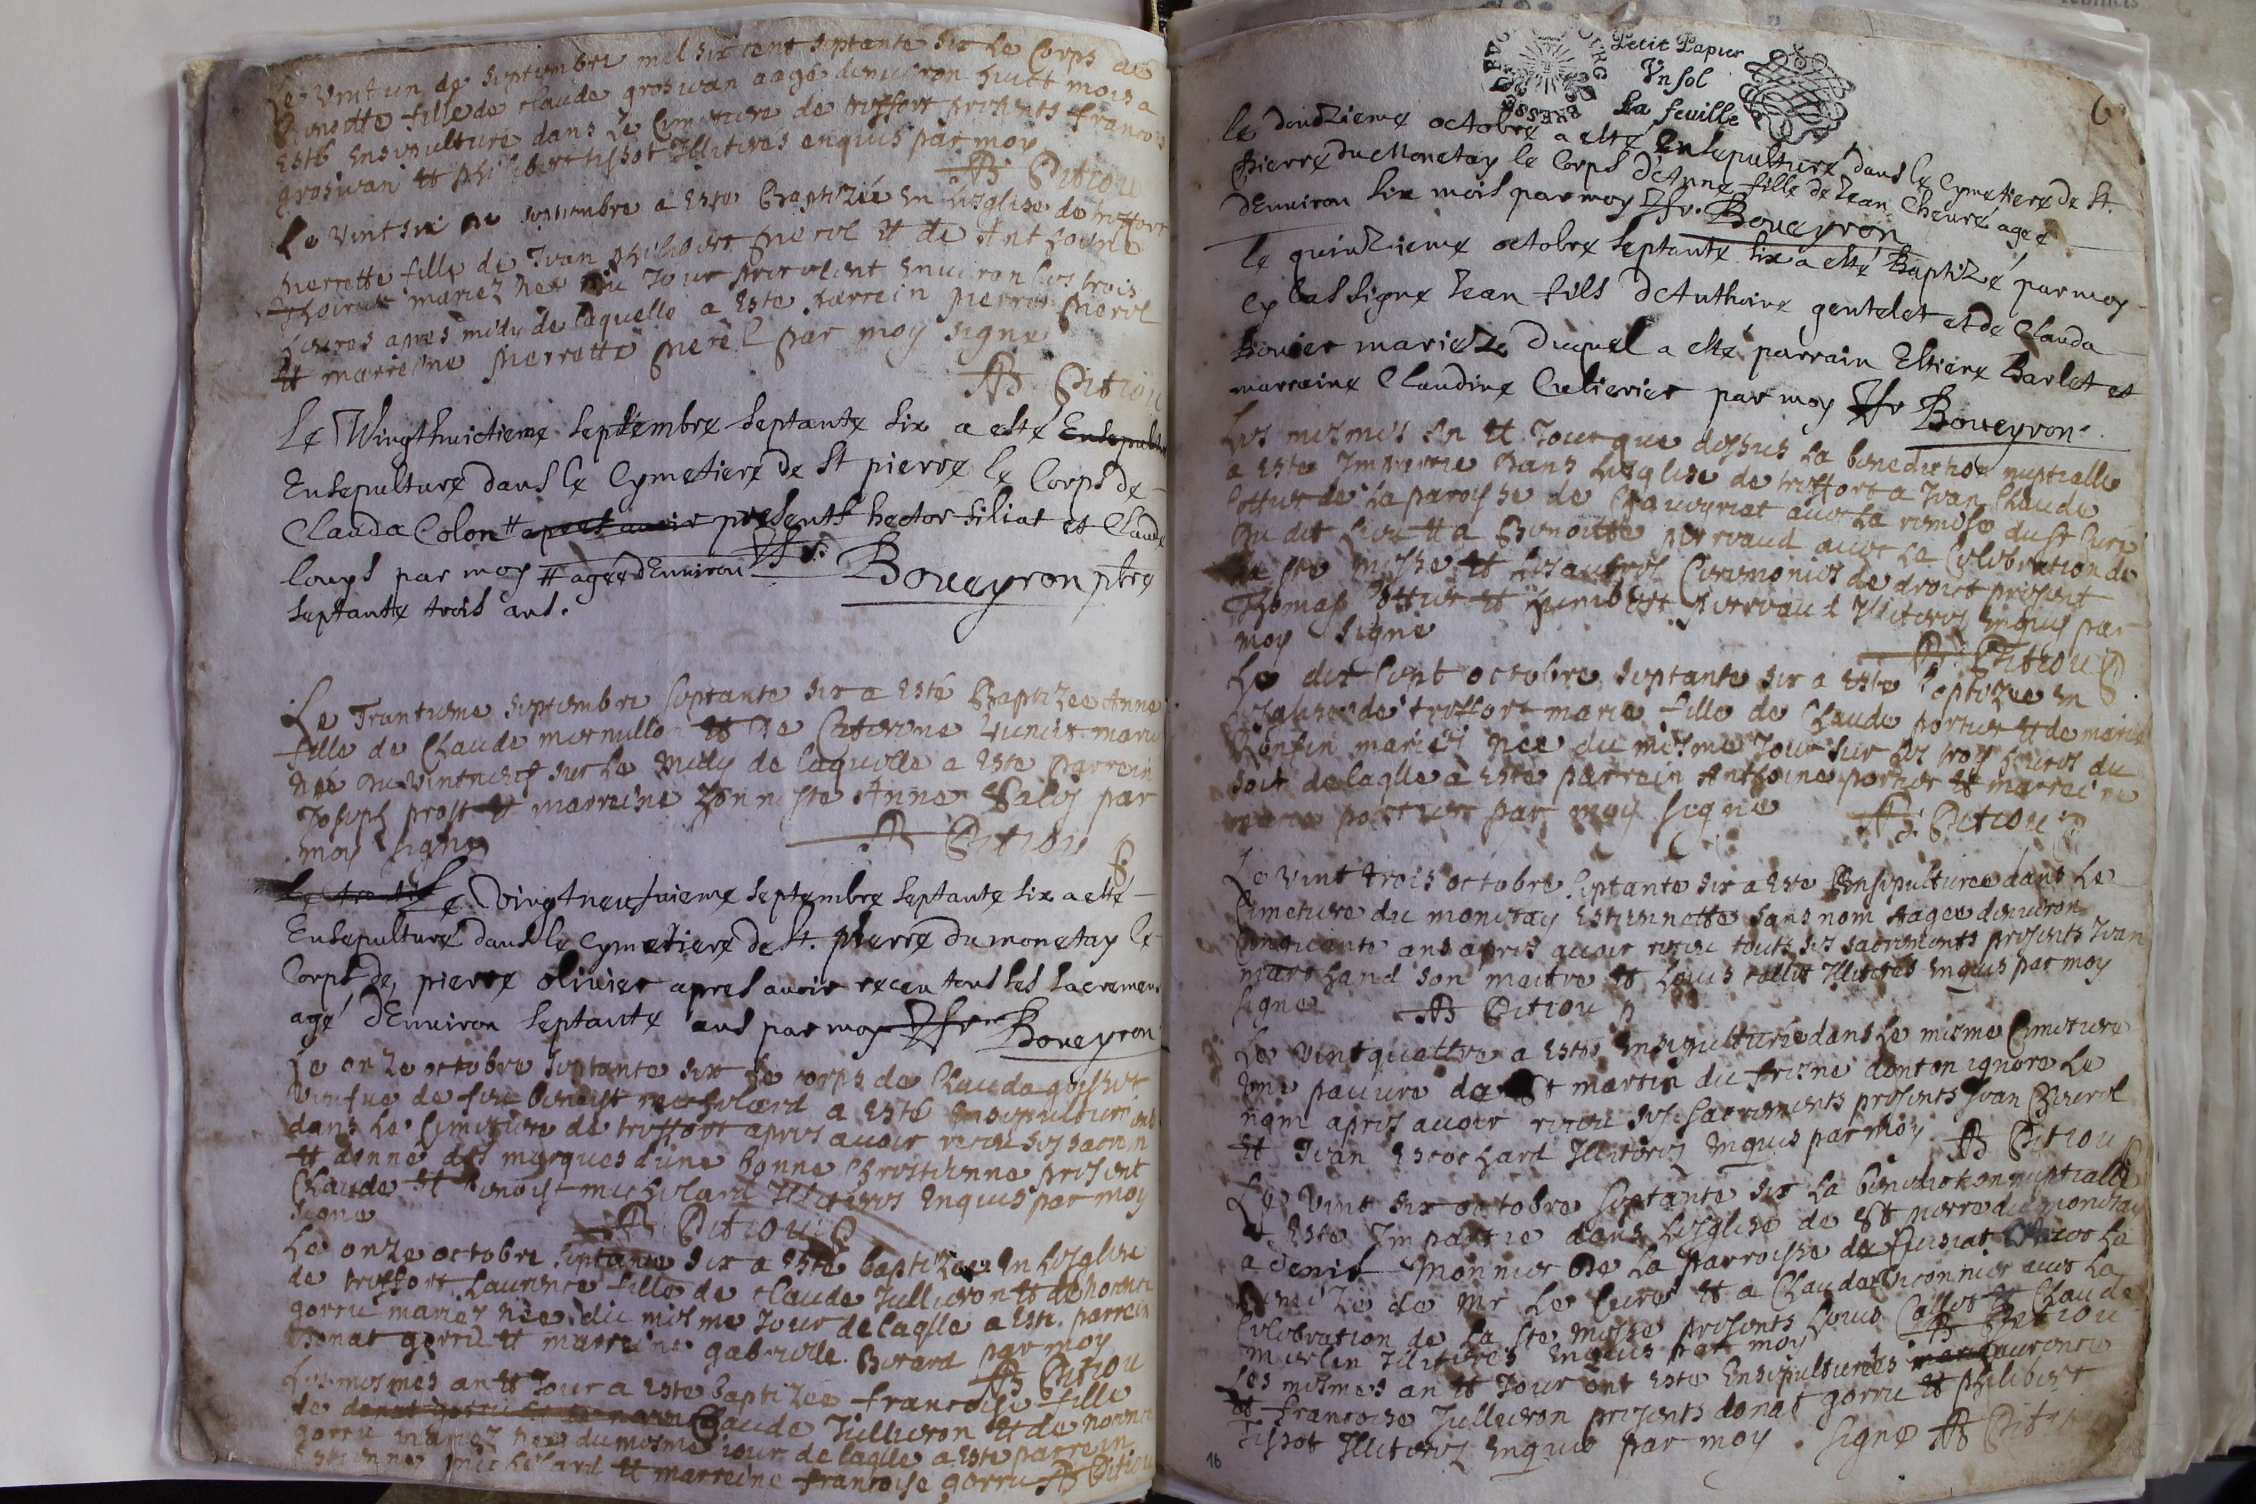 Le vint un de septembre mil six cent septante six le Corps de
Benoitte fille de claude grosivan aagé denviron huict mois a
esté Ensepulturé dans le Cimetiere de treffort presents francois
grosivan et philibert tissot Illiterés enquis par moy
AB Pitiou
Le vint six de septembre a este Baptizée en Lesglise de treffort
pierrette fille de Jean philibert perel et de Anthoine
mariez nee du Jour precedent environ les trois
heures apres midy de laquelle a este parrein pierre perel
et marreine pierrette perel par moy signé
AB Pitiou
Le Vingthuictieme septembre septante six a esté Ensepultu
Ensepulturé dans le Cymetiere de St pierre le Corps de
Clauda Colon # apres avoir presents hector siliat et Claude
Louys par moy # agée d'Environ Boueyron ptre
septante trois ans.
Le Trantiesme septembre septante six a esté Baptizee Anne
fille de Claude mernullo et de Caterine mariez
née du vintneuf sur le midy de laquelle a este parrein
Joseph prost et marreine honneste Anne par
moy signé
AB Pitiou
Le vingtneufvieme septembre septante six a esté
Ensepulturé dans le Cymetiere de St. pierre du monetay le
Corps de, pierre olivier apres avoir receu tous ses sacremens
agé d'Environ septante ans par moy Boueyron
Le onze octobre septante six le corps de Clauda
veufve de feu benoist michelard a esté ensepulturé
dans le Cimetiere de treffort apres avoir receu ses sacrem
et donné des marques d'une bonne Chrestienne present
Claude et benoist michelard Illiteres enquis par moy
signé
AB Pitiou
Le onze octobre septante six a esté baptizee en Lesglise
de treffort Laurence fille de claude Jullieron et de
gorru mariez née du mesme Jour de laqlle a este parrein
donat gorru et marreine gabrielle Berard par moy
AB Pitiou
Les mesmes an et Jour a este baptizee francoise fille
de Claude Jullieron et de
gorru mariez nee du mesme jour de laqlle a este parrein
Estienne michelard et marreine francoise gorru AB Pitiou
Petit Papier
Un sol
La feuille
BRESSE
6
le douzieme octobre a esté Ensepulturé dans le Cymetiere de St.
Pierre du Monetay le Corps d'Anne fille de Jean Cheuré agée
d'Environ six mois par moy Boueyron
Le quinzieme octobre septante six a esté Baptizé par moy
cy bas signé Jean fils d'Anthoine gentelet et de Clauda
Bouier mariez Duquel a esté parrain Estiene Barlet et
marraine Claudine Culierier par moy Boueyron
Les mesmes an et Jour que dessus la benediction nuptialle
a este Impartie dans Lesglise de treffort a Jean Claude
Cottier de la paroysse de Chaveyriat avec la remise du Sr Curé
du dit lieu et a Benoitte pervaud avec la Celebration de
la ste messe et les autres Ceremonies de droict present
Thomas Cottier et humbert pervaud Illiteres enquis par
moy signé
AB Pitiou
Le dix sept octobre septante six a este baptizee en
Lesglise de treffort marie fille de Claude portier et de marie
mariez née du mesme Jour sur les troys heures du
soir de laqlle a este parrein Anthoine portier et marreine
marie portier par moy signé AB Pitiou
Le vint trois octobre septante six a este Ensepulturee dans le
Cimetiere du monetay Estiennette sans nom aagee denviron
cinquante ans apres avoir receu touts ses sacrements presents Jean
marchand son maitre et Louis callet Illiteres enquis par moy
signé AB Pitiou
Le vint quattre a este ensepulturée dans le mesme Cimetiere
une pauvre de St martin du fresne dont on ignore le
nom apres avoir receu ses sacrements presents Jean
et Jean Escochard Illiteres enquis par moy AB Pitiou
Le vint six octobre septante six la benediction nuptialle
a este Impartie dans Lesglise de St pierre du monetay
a denis Monnier de la parroisse de Cuisiat avec la
remize de Mr le Curé et a Clauda avec la
Celebration de la ste messe presents Louis Callet et Claude
merlin Illiteres enquis par moy AB Pitiou
Les mesmes an et Jour ont este Ensepulturées Laurence
et francoise Jullieron presents donat gorru et philibert
Tissot Illiteres enquis par moy. signé AB Pitiou
16